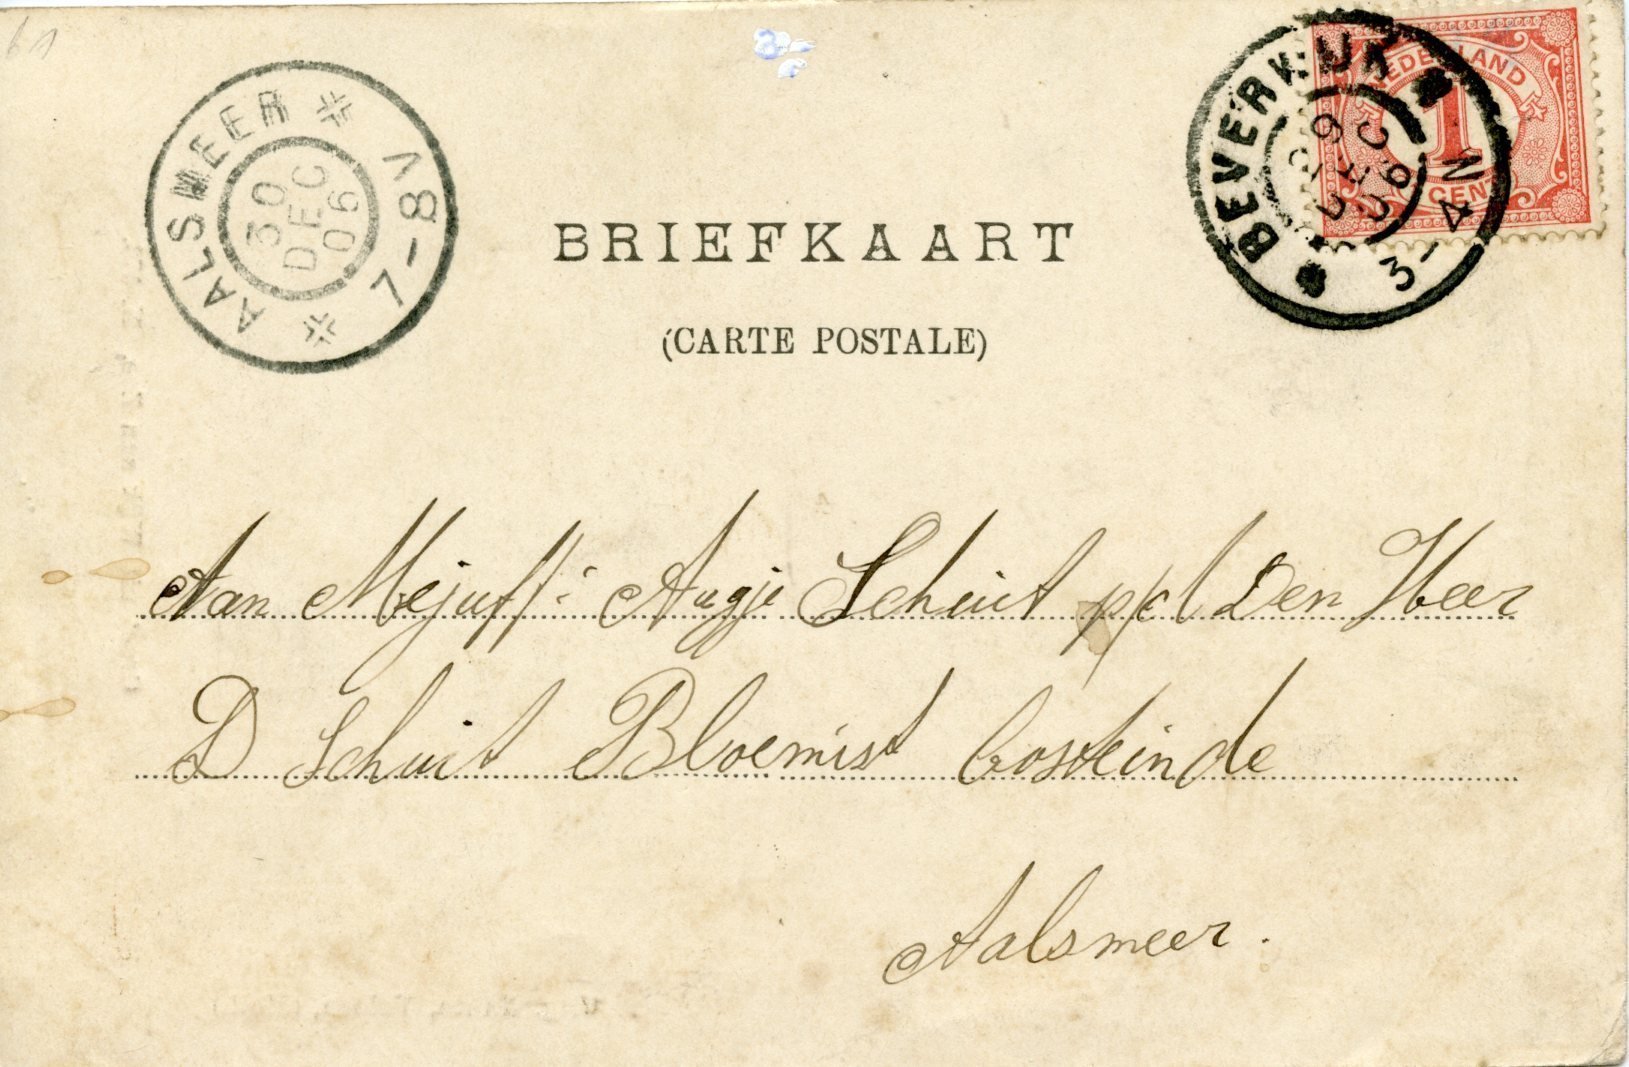 61
AALSMEER
30
DEC
06
7-8V
BEVERWIJK
29
DEC
06
3-4N
NEDERLAND
1
CENT
BRIEFKAART
(CARTE POSTALE)
Aan Mejuff: Aagje Schuit p/a Den Heer
D Schuit Bloemist Oosteinde
Aalsmeer.